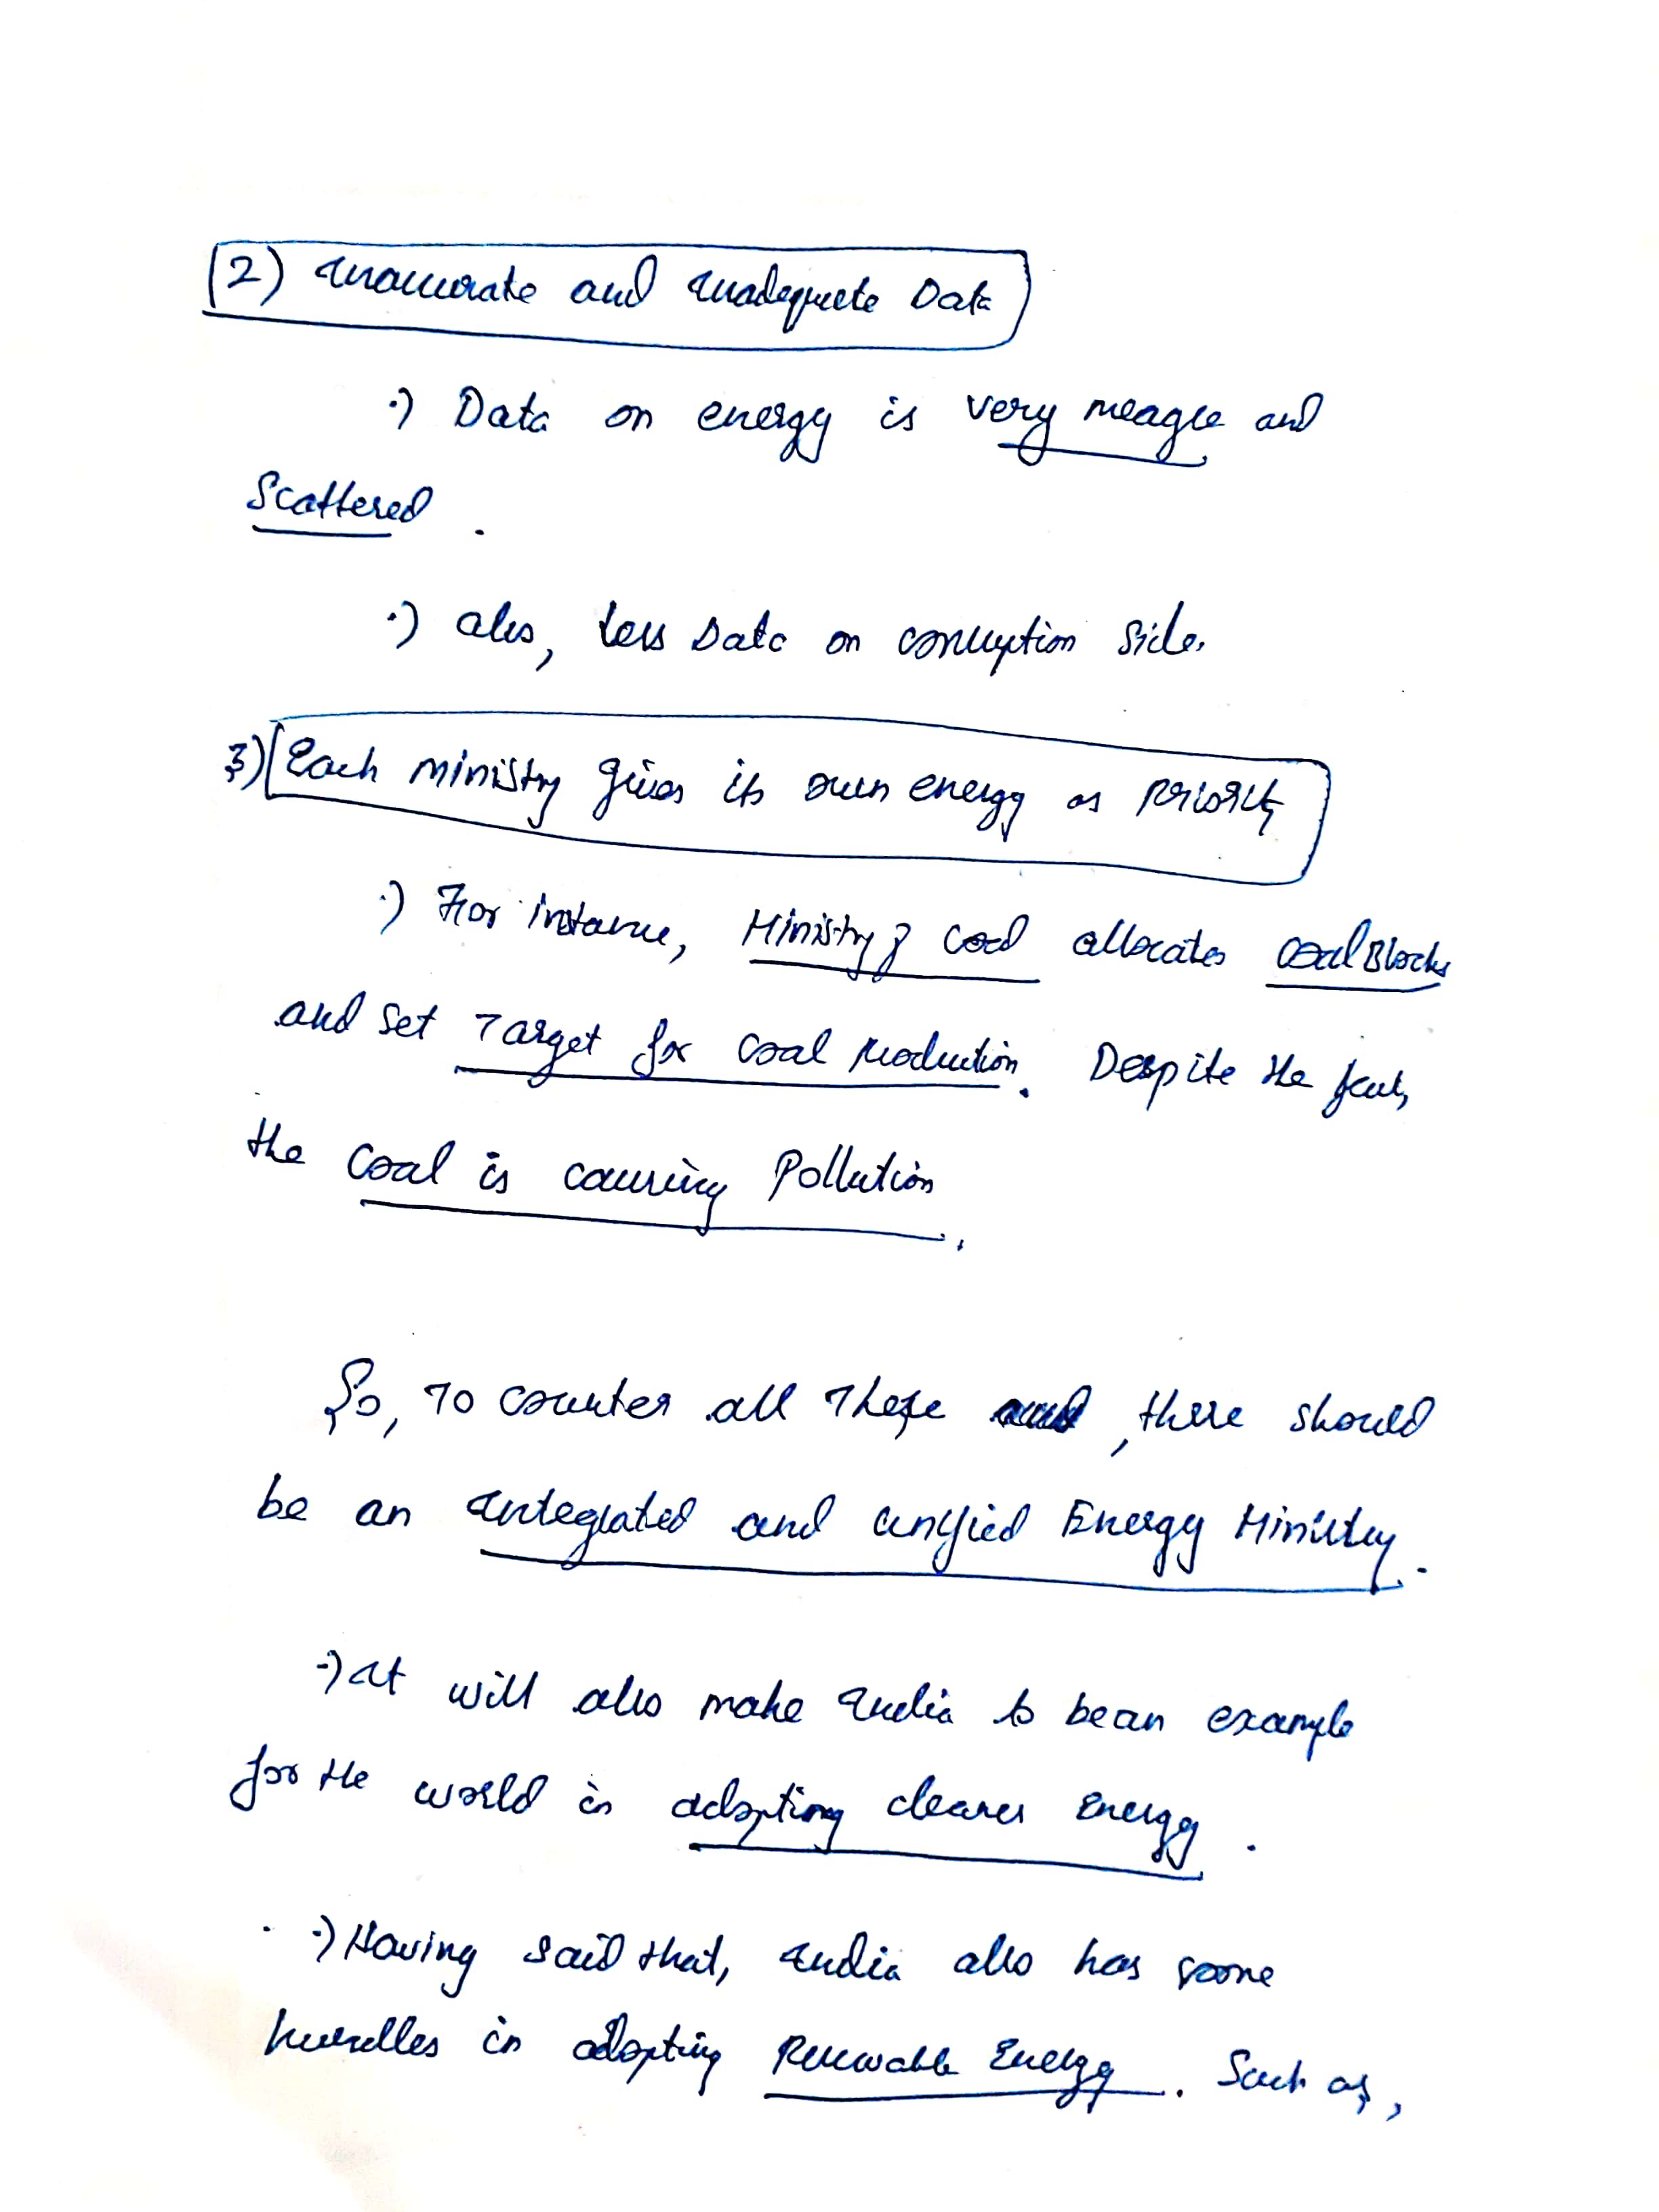 2) Inaccurate and Inadequate Data
·) Data on energy is very meagre and
Scattered .
·) also, less Data on consumption side.
3) Each ministry gives its own energy as Priority
·) For instance, Ministry of Coal allocates Coal Blocks
and set Target for Coal Production. Despite the fact,
the Coal is causing Pollution.
So, To counter all These , there should
be an Integrated and unified Energy Ministry.
·) It will also make India to be an example
for the world in adopting cleaner energy .
·) Having said that, India also has some
hurdles in adopting Renewable Energy . Such as,